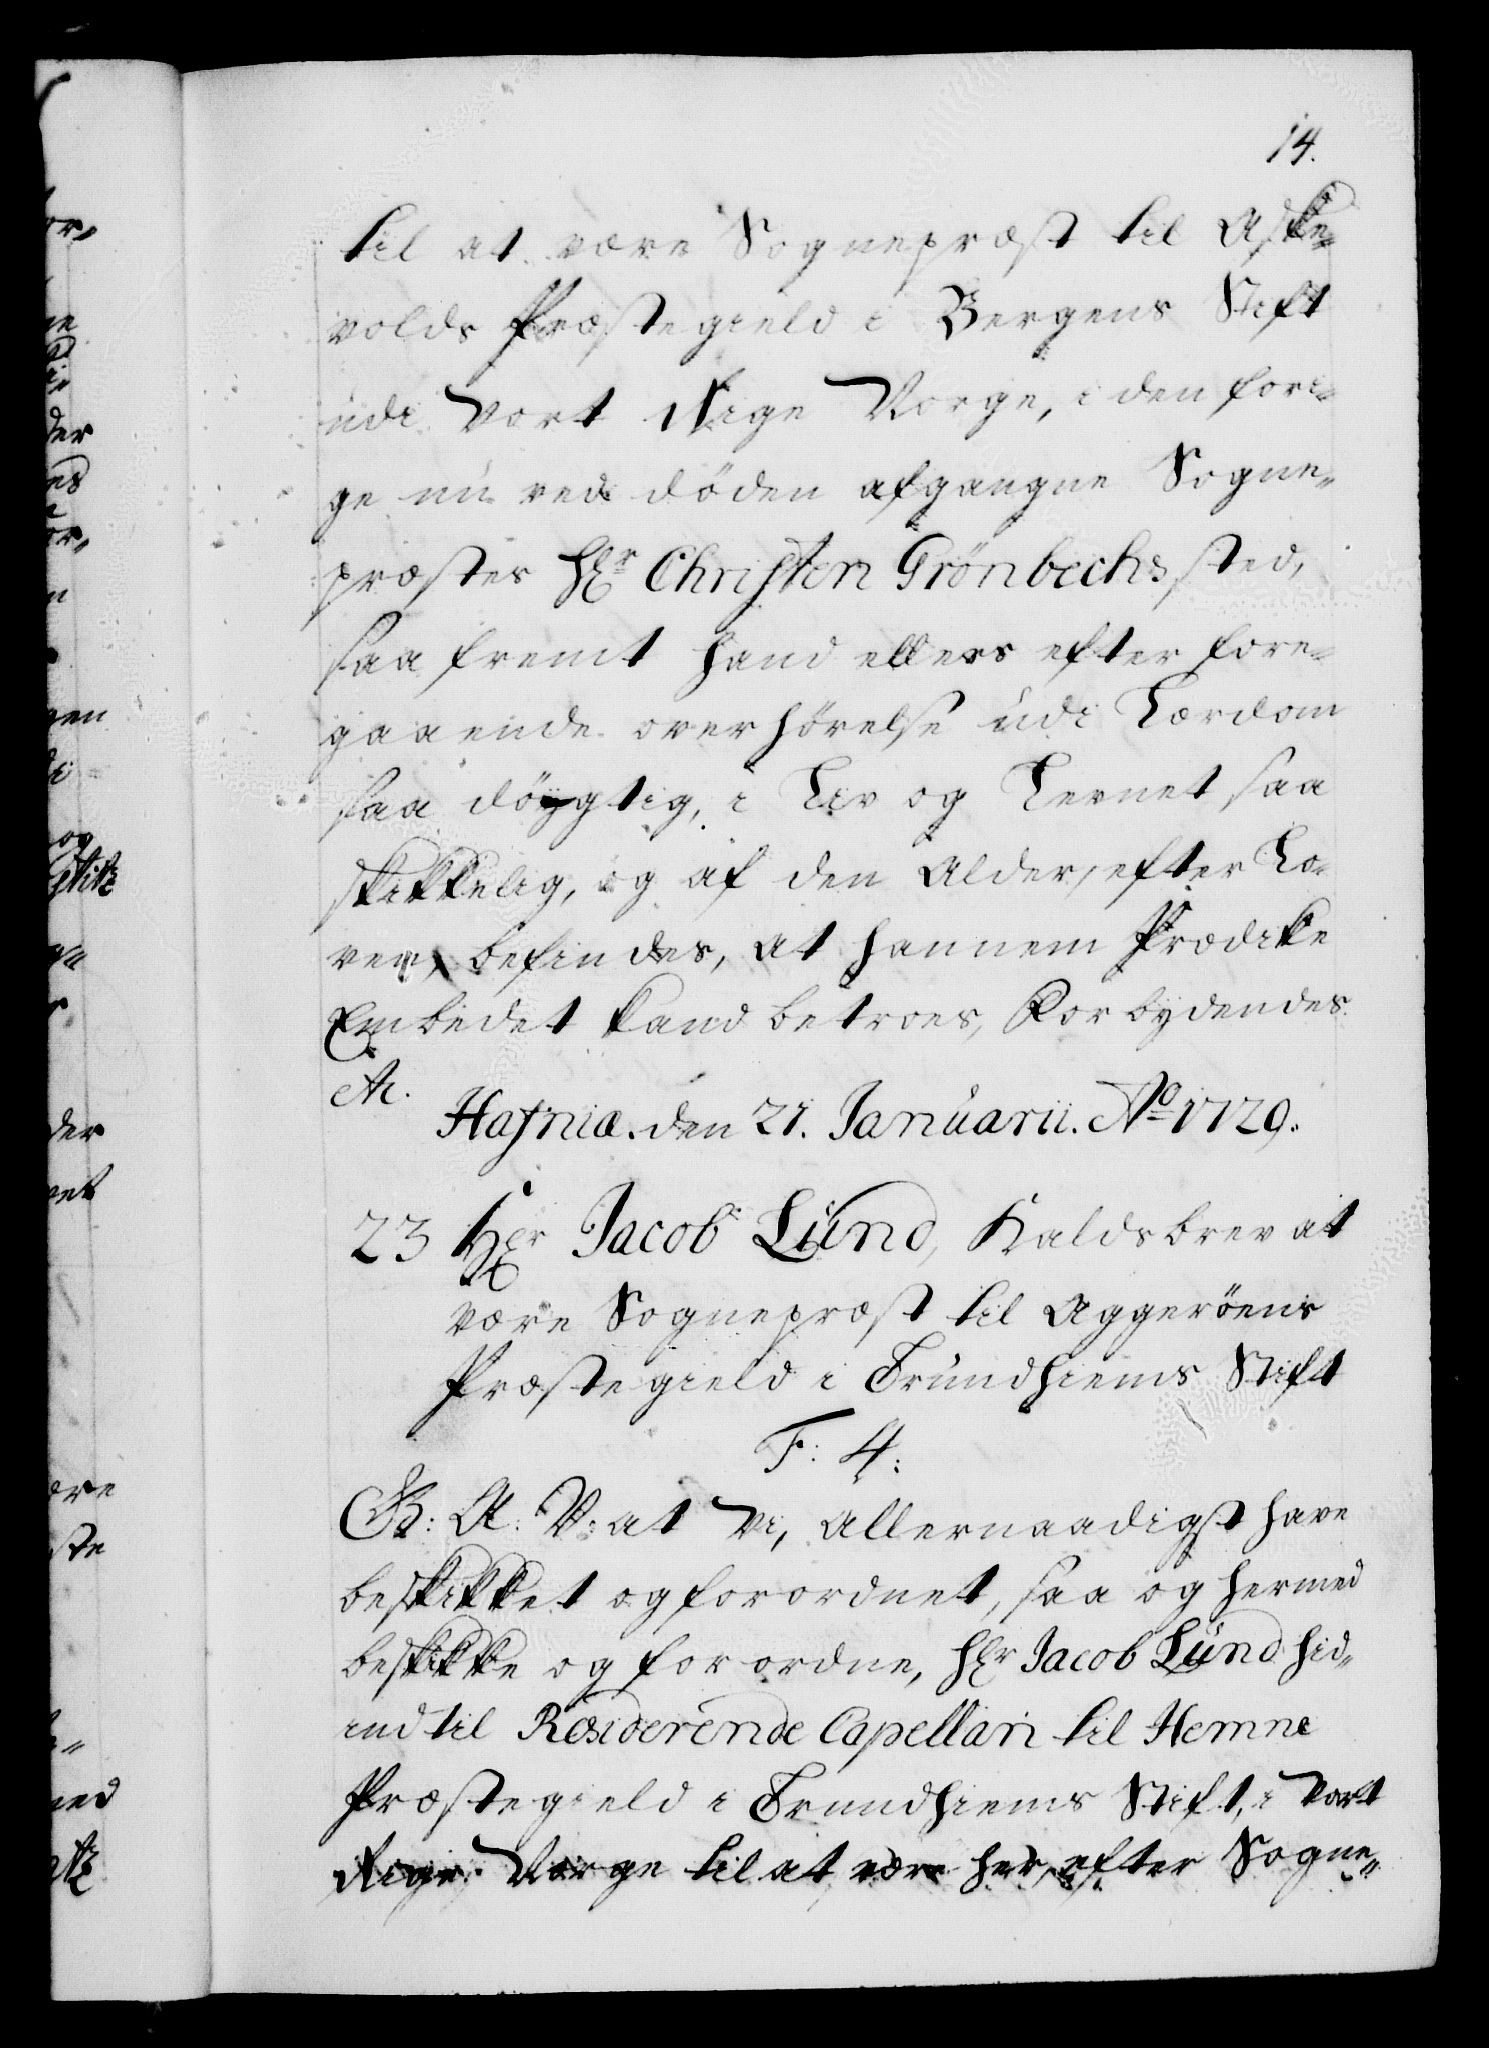 14.
til at være Sognepræst til Aske¬
volds Præstegield i Bergens Stift
udi Vort Rige Norge, i den fori¬
ge nu ved döden afgangne Sogne¬
præstes Hr Christen Grönbechs sted,
saa fremt hand ellers efter fore¬
gaaende overhörelse udi Lærdom
saa döygtig, i Liv og Levnet saa
skikkelig, og af den Alder, efter Lo¬
ven, befindes, at hannem Prædike
Embedet kand betroes, Forbydendes
etc.
Hafniæ. den 21. Januarii. Ao 1729.
23 Hr Jacob Lund, Kaldsbrev at
være Sognepræst til Aggeröens
Præstegield i Trundhiems Stift
F: 4:
G: A: V: at Vi, Allernaadigst have
beskikket og forordnet, saa og hermed
beskikke og forordne, Hr Jacob Lund hid¬
indtil Residerende Capellan til Hemne
Præstegield i Trundhiems Stift, i Vort
Rige Norge til at være her, efter Sogne¬